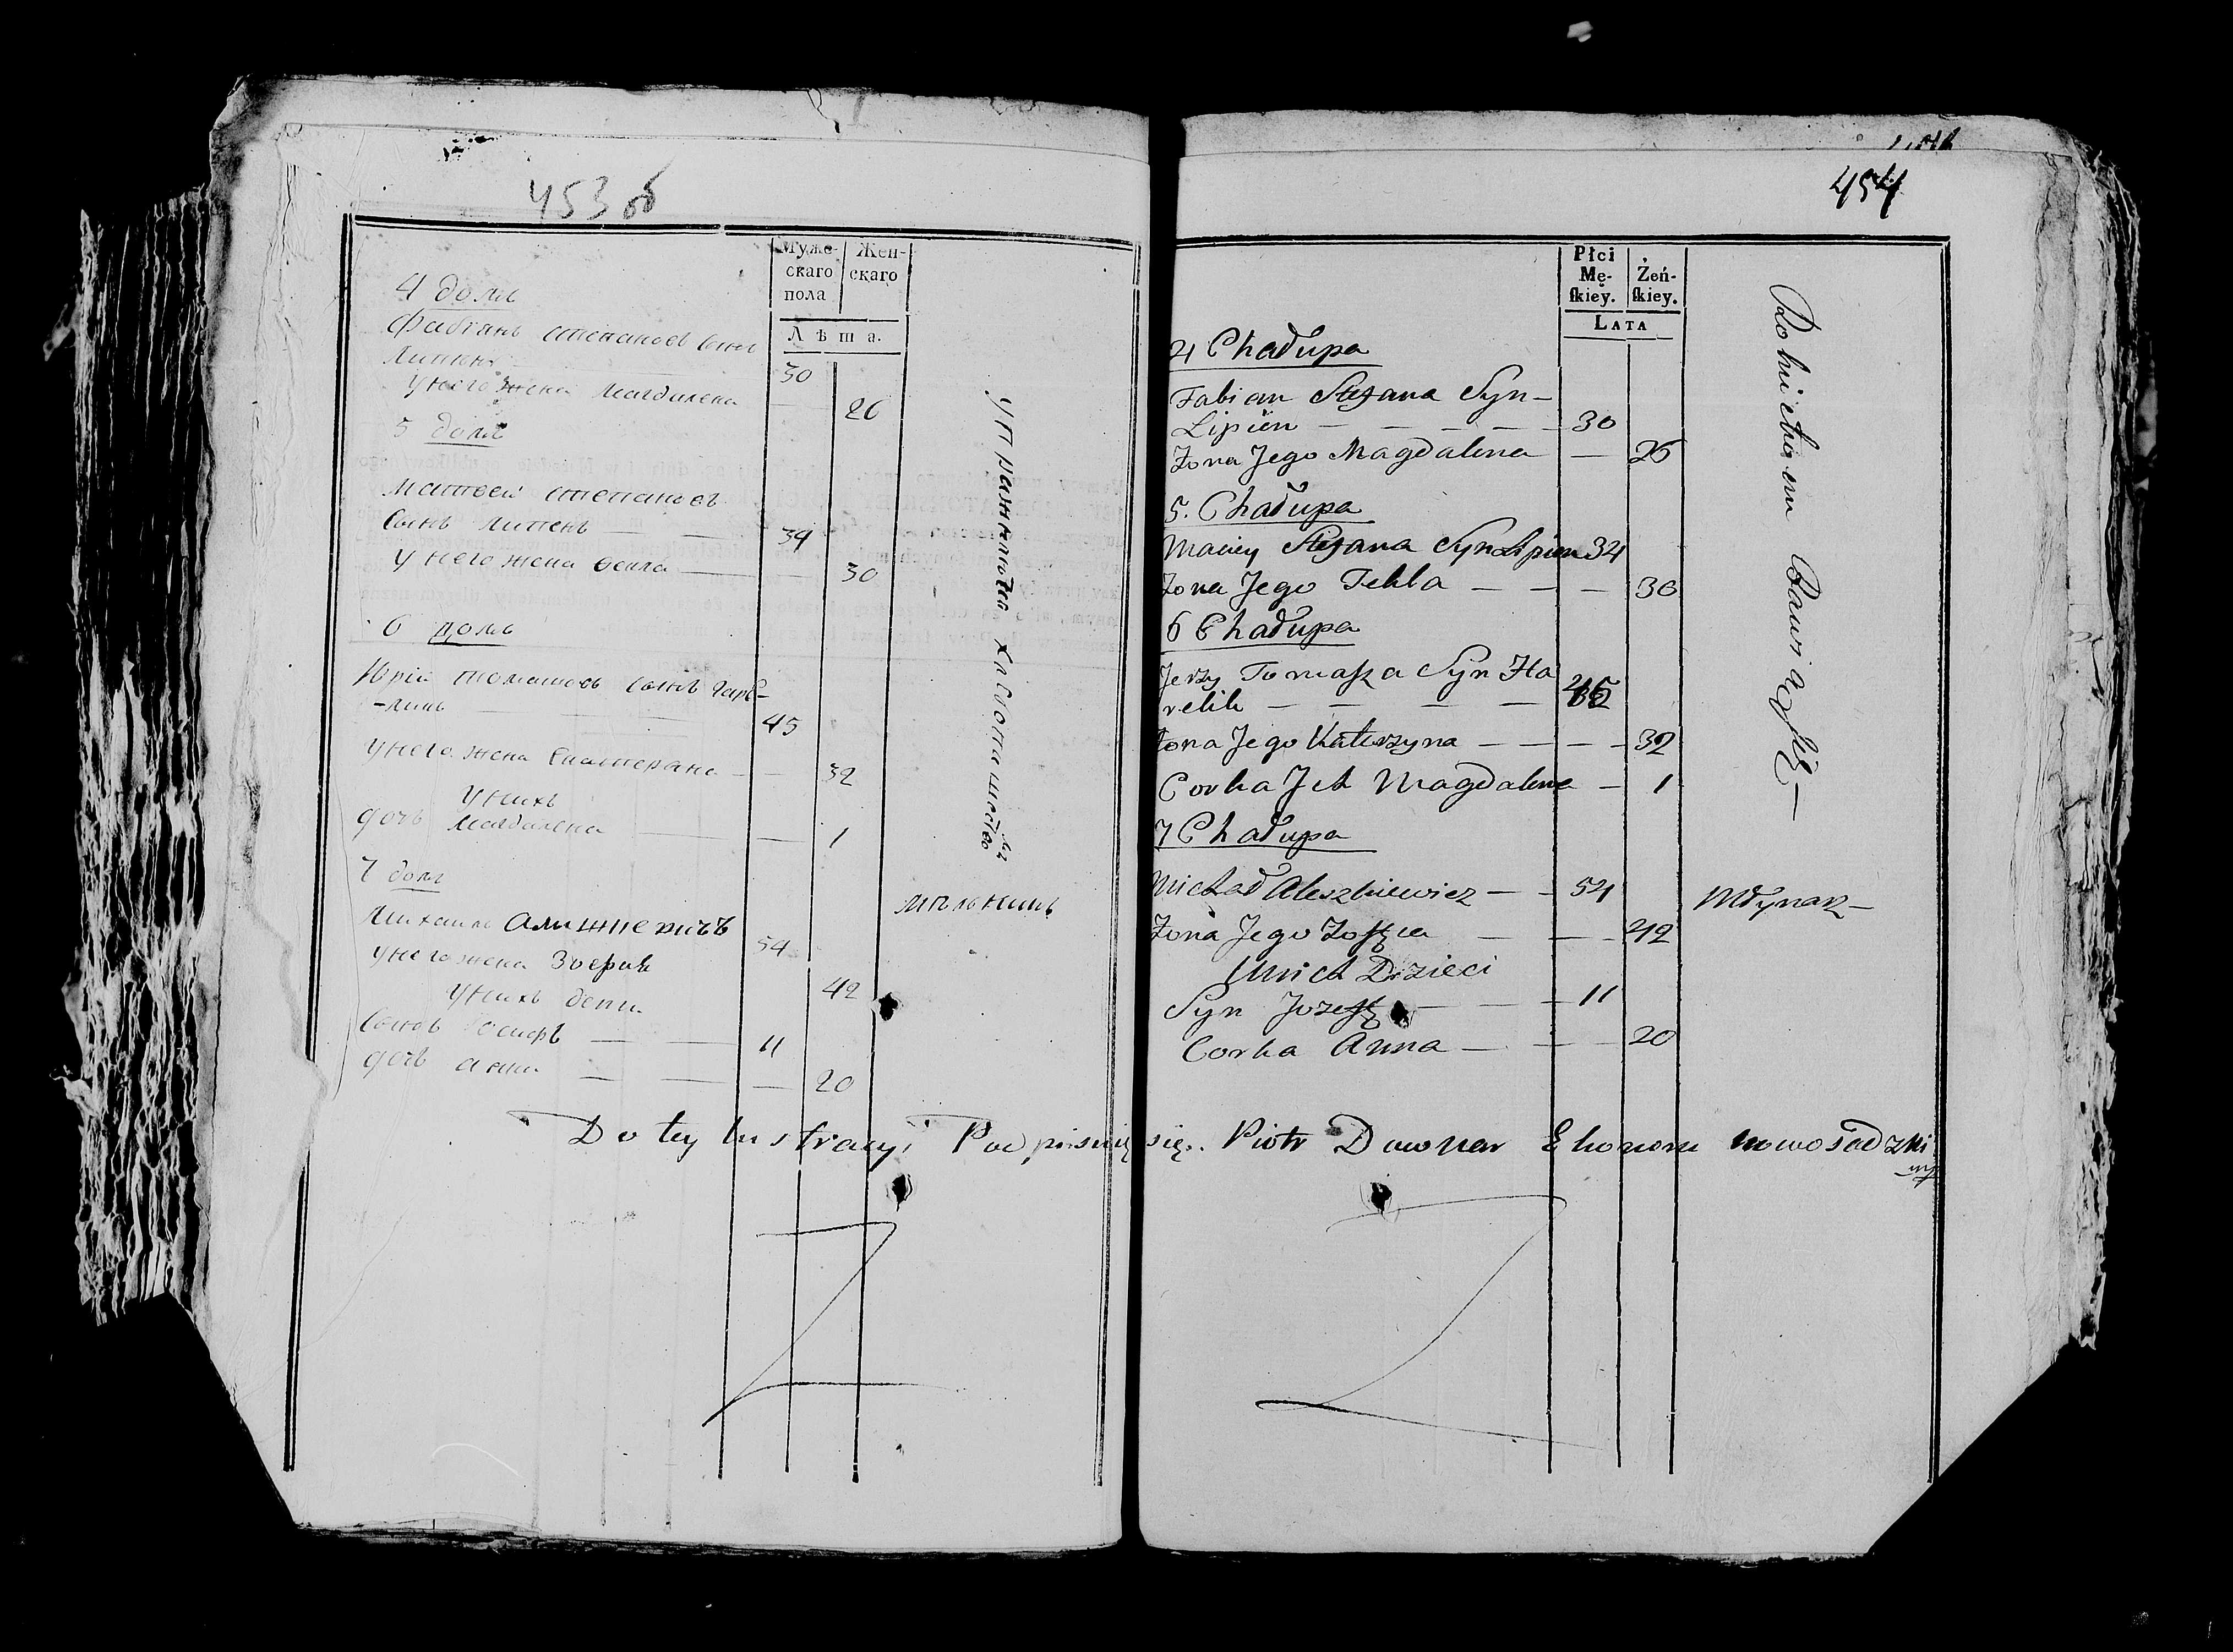 453 об
Муже-
скаго
пола
Жен-
скаго
Лѣта.
4 домъ
Фабiянъ степановъ сынъ
Липень
30
у него жена Магдалена
26
5 домъ
Матвей степановъ
сынъ липень
34
у него жена Текла
30
6 домъ
Юрiй томашовъ сынъ гаре-
-ликъ
45
у него жена Екатерина
32
у нихъ
дочь Магдалена
1
7 домъ
Михаилъ
54
мельникъ
у него жена Зофия
42
у нихъ дети
сынъ Iосифъ
11
дочь анна
20
упражняются хлебопашествомъ
454
Płci
Mę-
ſkiey.
Żeń-
ſkiey.
LATA
4 Chałupa
Fabian Stefana Syn
Lipień 30
Zona Jego Magdalena 26
5. Chałupa
Maciey Stefana Syn Lipien 34
Zona Jego Tekla 30
6 Chałupa
Jerzy Tomaſza Syn Ha
relik 45
Zona Jego Katerzyna 32
Corka Jch Magdalena 1
7 Chałupa
Michał Aleszkiewicz 54 Młynarz
Zona Jego Zofia 42
Unich Dzieci
Syn Jozef 11
Corka Anna 20
Rolnictwem Bawią się
Do tey lustracyi Podpisuię się. Piotr Downar Ekonom nowosadzki
mp